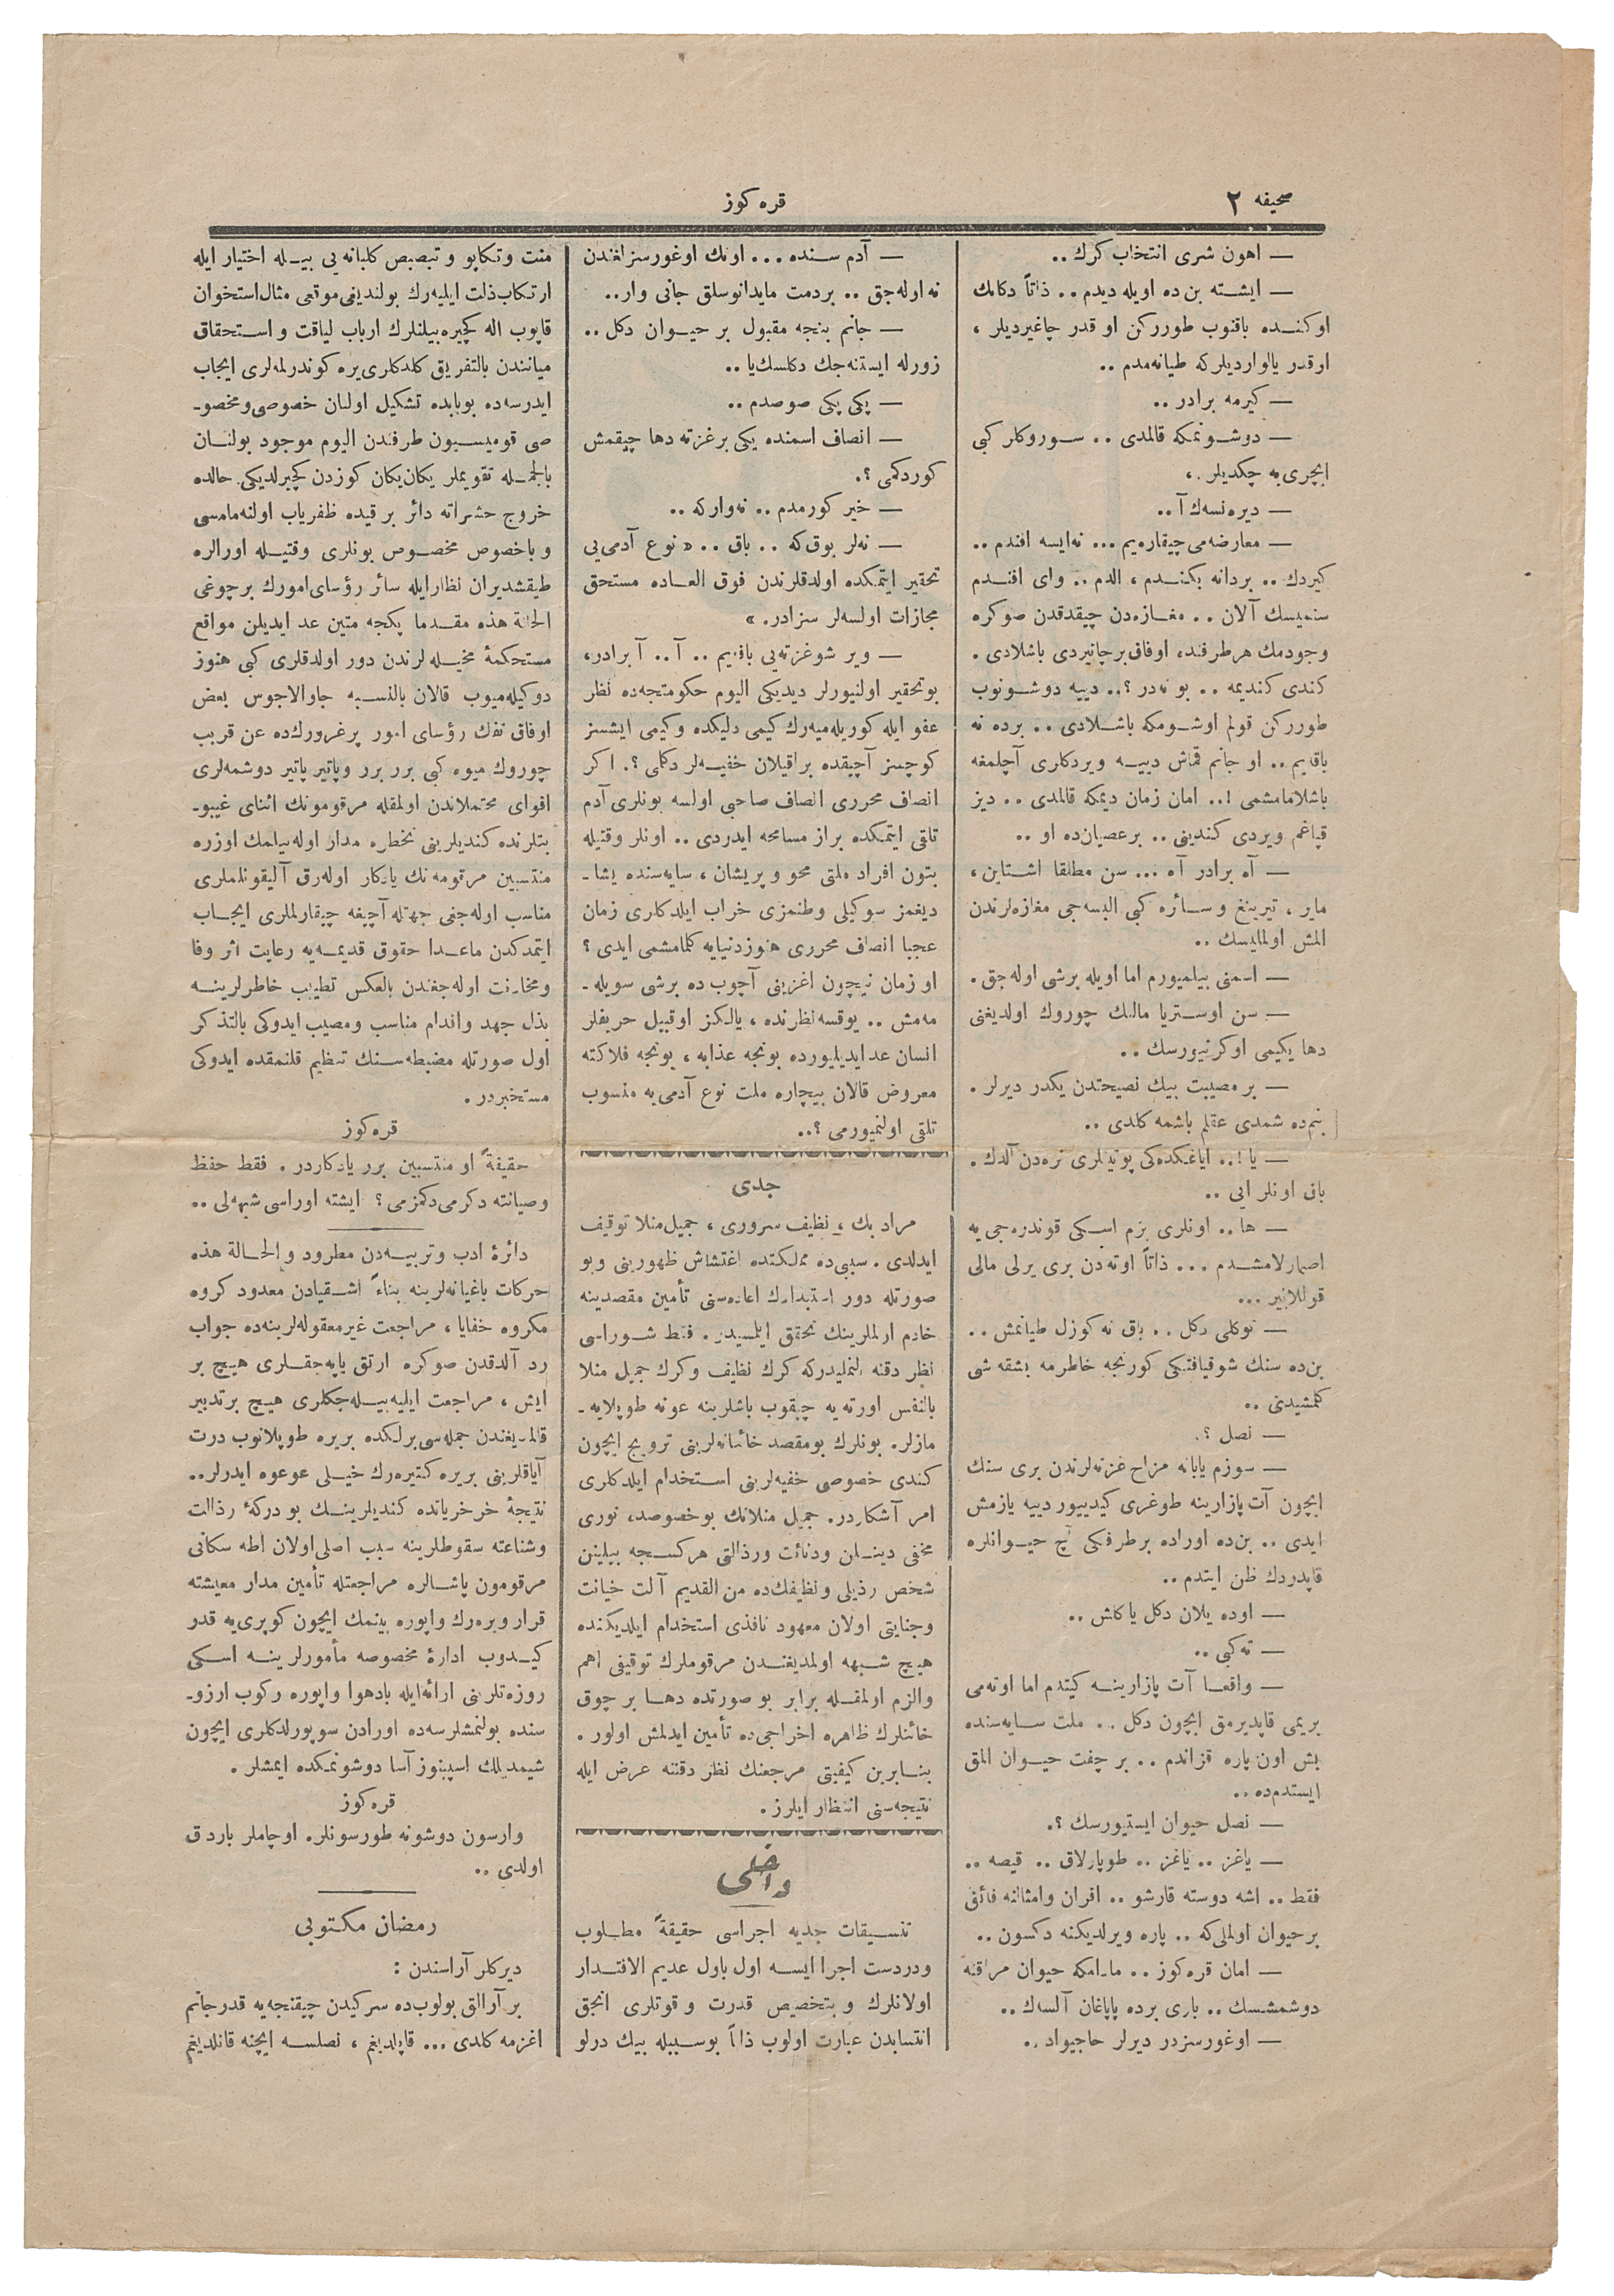 صحیفه ٢
قره كوز
— اهون شری انتخاب كرك ..
— ایشته بن ده اویله دیدم .. ذاتاً دكانك
اوكنده باقنوب طوررکن او قدر چاغیردیلر ،
اوقدر یالواردیلركه طیانه‌مدم ..
— كیرمه برادر ..
— دوشونمكه قالمدی .. سوروكلر كبی
ایچری‌یه چكدیلر .
— دیره‌نسه‌ك آ ..
— معارضه‌می چیقاره‌یم ... نه‌ایسه افندم ..
كیردك .. بردانه بكندم ، الدم .. وای افندم
سنمیسك آلان .. مغازه‌دن چیقدقدن صوكره
وجودمك هر طرفنده اوفاق برچاتیردی باشلادی .
كندی كندیمه .. بو نه‌در ؟.. دییه دوشونوب
طوررکن قولم اوشومكه باشلادی .. برده نه
باقه‌یم .. او جانم قماش دییه ویردكلری آچلمغه
باشلامامشمی !.. امان زمان دیمكه قالمدی .. دیز
قپاغم ویردی كندینی .. بر عصیان‌ده او ..
— آه برادر آه ... سن مطلقا اشتاین ،
مایر ، تیرینغ وسائره كبی البسه‌جی مغازه‌لرندن
المش اولمالیسك ..
— اسمنی بیلمیورم اما اویله برشی اوله‌جق .
— سن اوستریا مالنك چوروك اولدیغنی
دها یكیمی اوكرنیورسك ..
— بر مصیبت بیك نصیحتدن یكدر دیرلر .
بنم‌ده شمدی عقلم باشمه كلدی ..
— یا !.. ایاغكده‌كی پوتینلری نره‌دن آلدك .
باق اونلر ایی ..
— ها .. اونلری بزم اسكی قوندره‌جی‌یه
اصمارلامشدم ... ذاتاً اوته‌دن بری یرلی مالی
قوللانیر ...
— توكلی دكل .. باق نه كوزل طیانمش ..
بن‌ده سنك شو قیافتكی كورنجه خاطرمه بشقه شی
كلمشیدی ..
— نصل ؟.
— سوزم یابانه مزاح غزته‌لرندن بری سنك
ایچون آت پازارینه طوغری كیدییور دییه یازمش
ایدی .. بن‌ده اوراده بر طرفكی آچ حیوانلره
قاپدردك ظن ایتدم ..
— اوده یلان دكل یاكلش ..
— نه كبی ..
— واقعا آت پازارینه كیتدم اما اوته‌می
بریمی قاپدیرمق ایچون دكل .. ملت سایه‌سنده
بش اون پاره قزاندم .. بر چفت حیوان المق
ایستدم‌ده ..
— نصل حیوان ایستیورسك ؟.
— یاغز .. یاغز .. طوپارلاق .. قیصه ..
فقط .. اشه دوسته قارشو .. اقران وامثالنه فائق
بر حیوان اولمالی‌كه .. پاره ویرلدیكنه دكسون ..
— امان قره‌كوز .. مادامكه حیوان مراقنه
دوشمشسك .. باری برده پاپاغان آلسه‌ك ..
— اوغورسزدر دیرلر حاجیواد ..
— آدم سنده ... اونك اوغورسزلغندن
نه اوله‌جق .. بردمت مایدانوسلق جانی وار ..
— جانم بنجه مقبول بر حیوان دكل ..
زورله ایستنه‌جك دكلسك‌یا ..
— پكی پكی صوصدم ..
— انصاف اسمنده یكی بر غزته دها چیقمش
كوردكمی ؟.
— خیر كورمدم .. نه‌واركه ..
— نه‌لر یوق‌كه .. باق .. « نوع آدمی‌یی
تحقیر ایتمكده اولدقلرندن فوق العاده مستحق
مجازات اولسه‌لر سزادر . »
— ویر شو غزته‌یی باقه‌یم .. آ .. آ برادر ،
بو تحقیر اولنیورلر دیدیكی الیوم حكومتجه‌ده نظر
عفو ایله كوریله‌میه‌رك كیمی دلیكده وكیمی ایشسز
كوچسز آچیقده براقیلان خفیه‌لر دكلمی ؟. اكر
انصاف محرری انصاف صاحبی اولسه بونلری آدم
تلقی ایتمكده براز مسامحه ایدردی .. اونلر وقتیله
بتون افراد ملتی محو و پریشان ، سایه‌سنده یشا-
دیغمز سوكیلی وطنمزی خراب ایلدكلری زمان
عجبا انصاف محرری هنوز دنیایه كلمامشمی ایدی ؟
او زمان نیچون اغزینی آچوب ده برشی سویله-
مه‌مش .. یوقسه نظرنده ، یالكز اوقبیل حریفلر
انسان عد ایدیلیورده بونجه عذابه ، بونجه فلاكته
معروض قالان بیچاره ملت نوع آدمی‌یه منسوب
تلقی اولنمیورمی ؟..
جدی
مراد بك ، نظیف سروری ، جمیل منلا توقیف
ایدلدی . سببی‌ده مملكتده اغتشاش ظهورینی وبو
صورتله دور استبدادك اعاده‌سنی تأمین مقصدینه
خادم ارلملرینك تحقق ایلمسیدر . فقط شوراسی
نظر دقته النملیدركه كرك نظیف وكرك جمیل منلا
بالنفس اورته‌یه چیقوب باشلرینه عونه طوپلایه-
مازلر . بونلرك بومقصد خائنانه‌لرینی ترویج ایچون
كندی خصوصی خفیه‌لرینی استخدام ایلدكلری
امر آشكاردر . جمیل منلانك بوخصوصده نوری
مخفی دینیلن ودنائت ورذالتی هركسجه بیلینن
شخص رذیلی ونظیفك‌ده من القدیم آلت خیانت
وجنایتی اولان معهود نافذی استخدام ایلدیكنده
هیچ شبهه اولمدیغندن مرقوملرك توقیفی اهم
والزم اولمقله برابر بو صورتده دها بر چوق
خائنلرك ظاهره اخراجی‌ده تأمین ایدلمش اولور .
بنابرین كیفیتی مرجعنك نظر دقتنه عرض ایله
نتیجه‌سنی انتظار ایلرز .
داخلی
تنسیقات جدیه اجراسی حقیقةً مطلوب
ودردست اجرا ایسه اول باول عدیم الاقتدار
اولانلرك و بتخصیص قدرت و قوتلری انجق
انتسابدن عبارت اولوب ذاتاً بوسببله بیك درلو
منت وتكاپو و تبصبص كلبانه‌یی بیله اختیار ایله
ارتكاب ذلت ایلیه‌رك بولندیغی موقعی مثال استخوان
قاپوب اله كچیره‌بیلنلرك ارباب لیاقت واستحقاق
میانندن بالتفریق كلدكلری یره كوندرلمه‌لری ایجاب
ایدرسه‌ده بوبابده تشكیل اولنان خصوصی ومخصو-
صی قومیسیون طرفندن الیوم موجود بولنان
بالجمله تقویملر یكان یكان كوزدن كچیرلدیكی حالده
خروج حشراته دائر بر قیده ظفریاب اولنه‌مامسی
و باخصوص مخصوص بونلری وقتیله اورالره
طیقشدیران نظار ایله سائر رؤسای امورك برچوغی
الحالة هذه مقدما پكجه متین عد ایدیلن مواقع
مستحكمهٔ مخیله‌لرندن دور اولدقلری كبی هنوز
دوكیله‌میوب قالان بالنسبه جاوالاجوس بعض
اوفاق تفك رؤسای امور پرغرورك‌ده عن قریب
چوروك میوه كبی برر برر وپاتیر پاتیر دوشمه‌لری
اقوای محتملاندن اولمقله مرقومونك اثنای غیبو-
بتلرنده كندیلرینی تخطره مدار اوله‌بیلمك اوزره
منتسبین مرقومه‌نك یادكار اوله‌رق آلیقونلملری
مناسب اوله‌جغی جهتله آچیغه چیقارلملری ایجاب
ایتمدكدن ماعدا حقوق قدیمه‌یه رعایت اثر وفا
ومخادنت اوله‌جغندن بالعكس تطییب خاطرلرینه
بذل جهد واقدام مناسب ومصیب ایدوكی بالتذكر
اول صورتله مضبطه‌سنك تنظیم قلنمقده ایدوكی
مستخبردر .
قره كوز
حقیقةً او منتسبین برر یادكاردر . فقط حفظ
وصیانته دكرمی دكمزمی ؟ ایشته اوراسی شبهه‌لی ..
دائرهٔ ادب وتربیه‌دن مطرود والحالة هذه
حركات باغیانه‌لرینه بناءً اشقیادن معدود كروه
مكروه خفایا ، مراجعت غیر معقوله‌لرینه‌ده جواب
رد آلدقدن صوكره ارتق یاپه‌جقلری هیچ بر
ایش ، مراجعت ایلیه‌بیله‌جكلری هیچ بر تدبیر
قالمدیغندن جمله‌سی برلكده بریره طوپلانوب درت
آیاقلرینی بریره كتیره‌رك خیلی عوعوه ایدرلر ..
نتیجهٔ خرخریاتده كندیلرینك بو دركهٔ رذالت
وشناعته سقوطلرینه سبب اصلی اولان اطه سكانی
مرقومون پاشالره مراجعتله تأمین مدار معیشته
قرار ویره‌رك واپوره بینمك ایچون كوپری‌یه قدر
كیدوب ادارهٔ مخصوصه مأمورلرینه اسكی
روزه‌تلرینی ارائه ایله بادهوا واپوره ركوب ارزو-
سنده بولنمشلرسه‌ده اورادن سوپورلدكلری ایچون
شیمدیلك اسپینوز آسا دوشونمكده ایمشلر .
قره كوز
وارسون دوشونه طورسونلر . اوچاملر بارداق
اولدی ..
رمضان مكتوبی
دیركلر آراسندن :
بر آرالق بولوب‌ده سركیدن چیقنجه‌یه قدر جانم
اغزمه كلدی ... قاپلدیغم ، نصلسه ایچنه قاتلدیغم